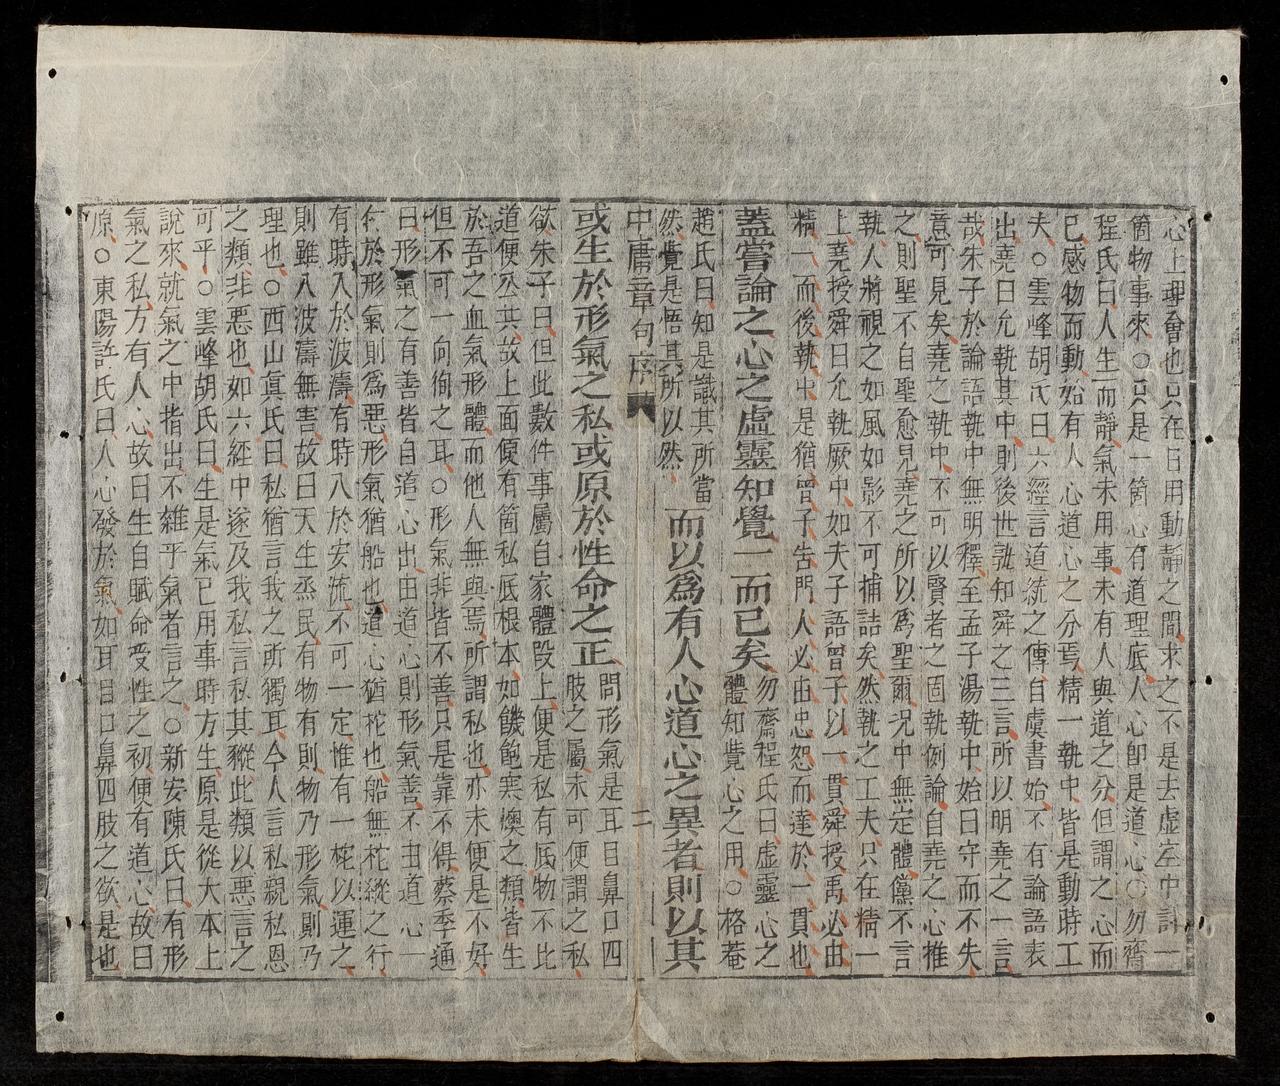 心上理會也只在日用動靜之間求之不是去虛空中討一
箇物事來○只是一箇心有道理底人心卽是道心○勿齋
程氏曰人生而靜氣未用事未有人與道之分但謂之心而
已感物而動始有人心道心之分焉精一執中皆是動時工
夫○雲峰胡氏曰六經言道統之傳自虞書始不有論語表
出堯曰允執其中則後世孰知舜之三言所以明堯之一言
哉朱子於論語執中無明釋至孟子湯執中始曰守而不失
意可見矣堯之執中不可以賢者之固執例論自堯之心推
之則聖不自聖愈見堯之所以爲聖爾況中無定體儻不言
執人將視之如風如影不可捕詰矣然執之工夫只在精一
上堯授舜曰允執厥中如夫子語曾子以一貫舜授禹必由
精一而後執中是猶曾子告門人必由忠恕而達於一貫也
蓋嘗論之心之虛靈知覺一而已矣
勿齋程氏曰虛靈心之
體知覺心之用○格菴
趙氏曰知是識其所當
然覺是悟其所以然
而以爲有人心道心之異者則以其
中庸章句序 二
或生於形氣之私或原於性命之正
問形氣是耳目鼻口四
肢之屬未可便謂之私
欲朱子曰但此數件事屬自家體段上便是私有底物不比
道便公共故上面便有箇私底根本如饑飽寒燠之類皆生
於吾之血氣形體而他人無與焉所謂私也亦未便是不好
但不可一向徇之耳○形氣非皆不善只是靠不得蔡季通
曰形氣之有善皆自道心出由道心則形氣善不由道心一
付於形氣則爲惡形氣猶船也道心猶柂也船無柂縱之行
有時入於波濤有時入於安流不可一定惟有一柂以運之
則雖入波濤無害故曰天生烝民有物有則物乃形氣則乃
理也○西山眞氏曰私猶言我之所獨耳今人言私親私恩
之類非惡也如六經中遂及我私言私其豵此類以惡言之
可乎○雲峰胡氏曰生是氣已用事時方生原是從大本上
說來就氣之中指出不雜乎氣者言之○新安陳氏曰有形
氣之私方有人心故曰生自賦命受性之初便有道心故曰
原○東陽許氏曰人心發於氣如耳目口鼻四肢之欲是也